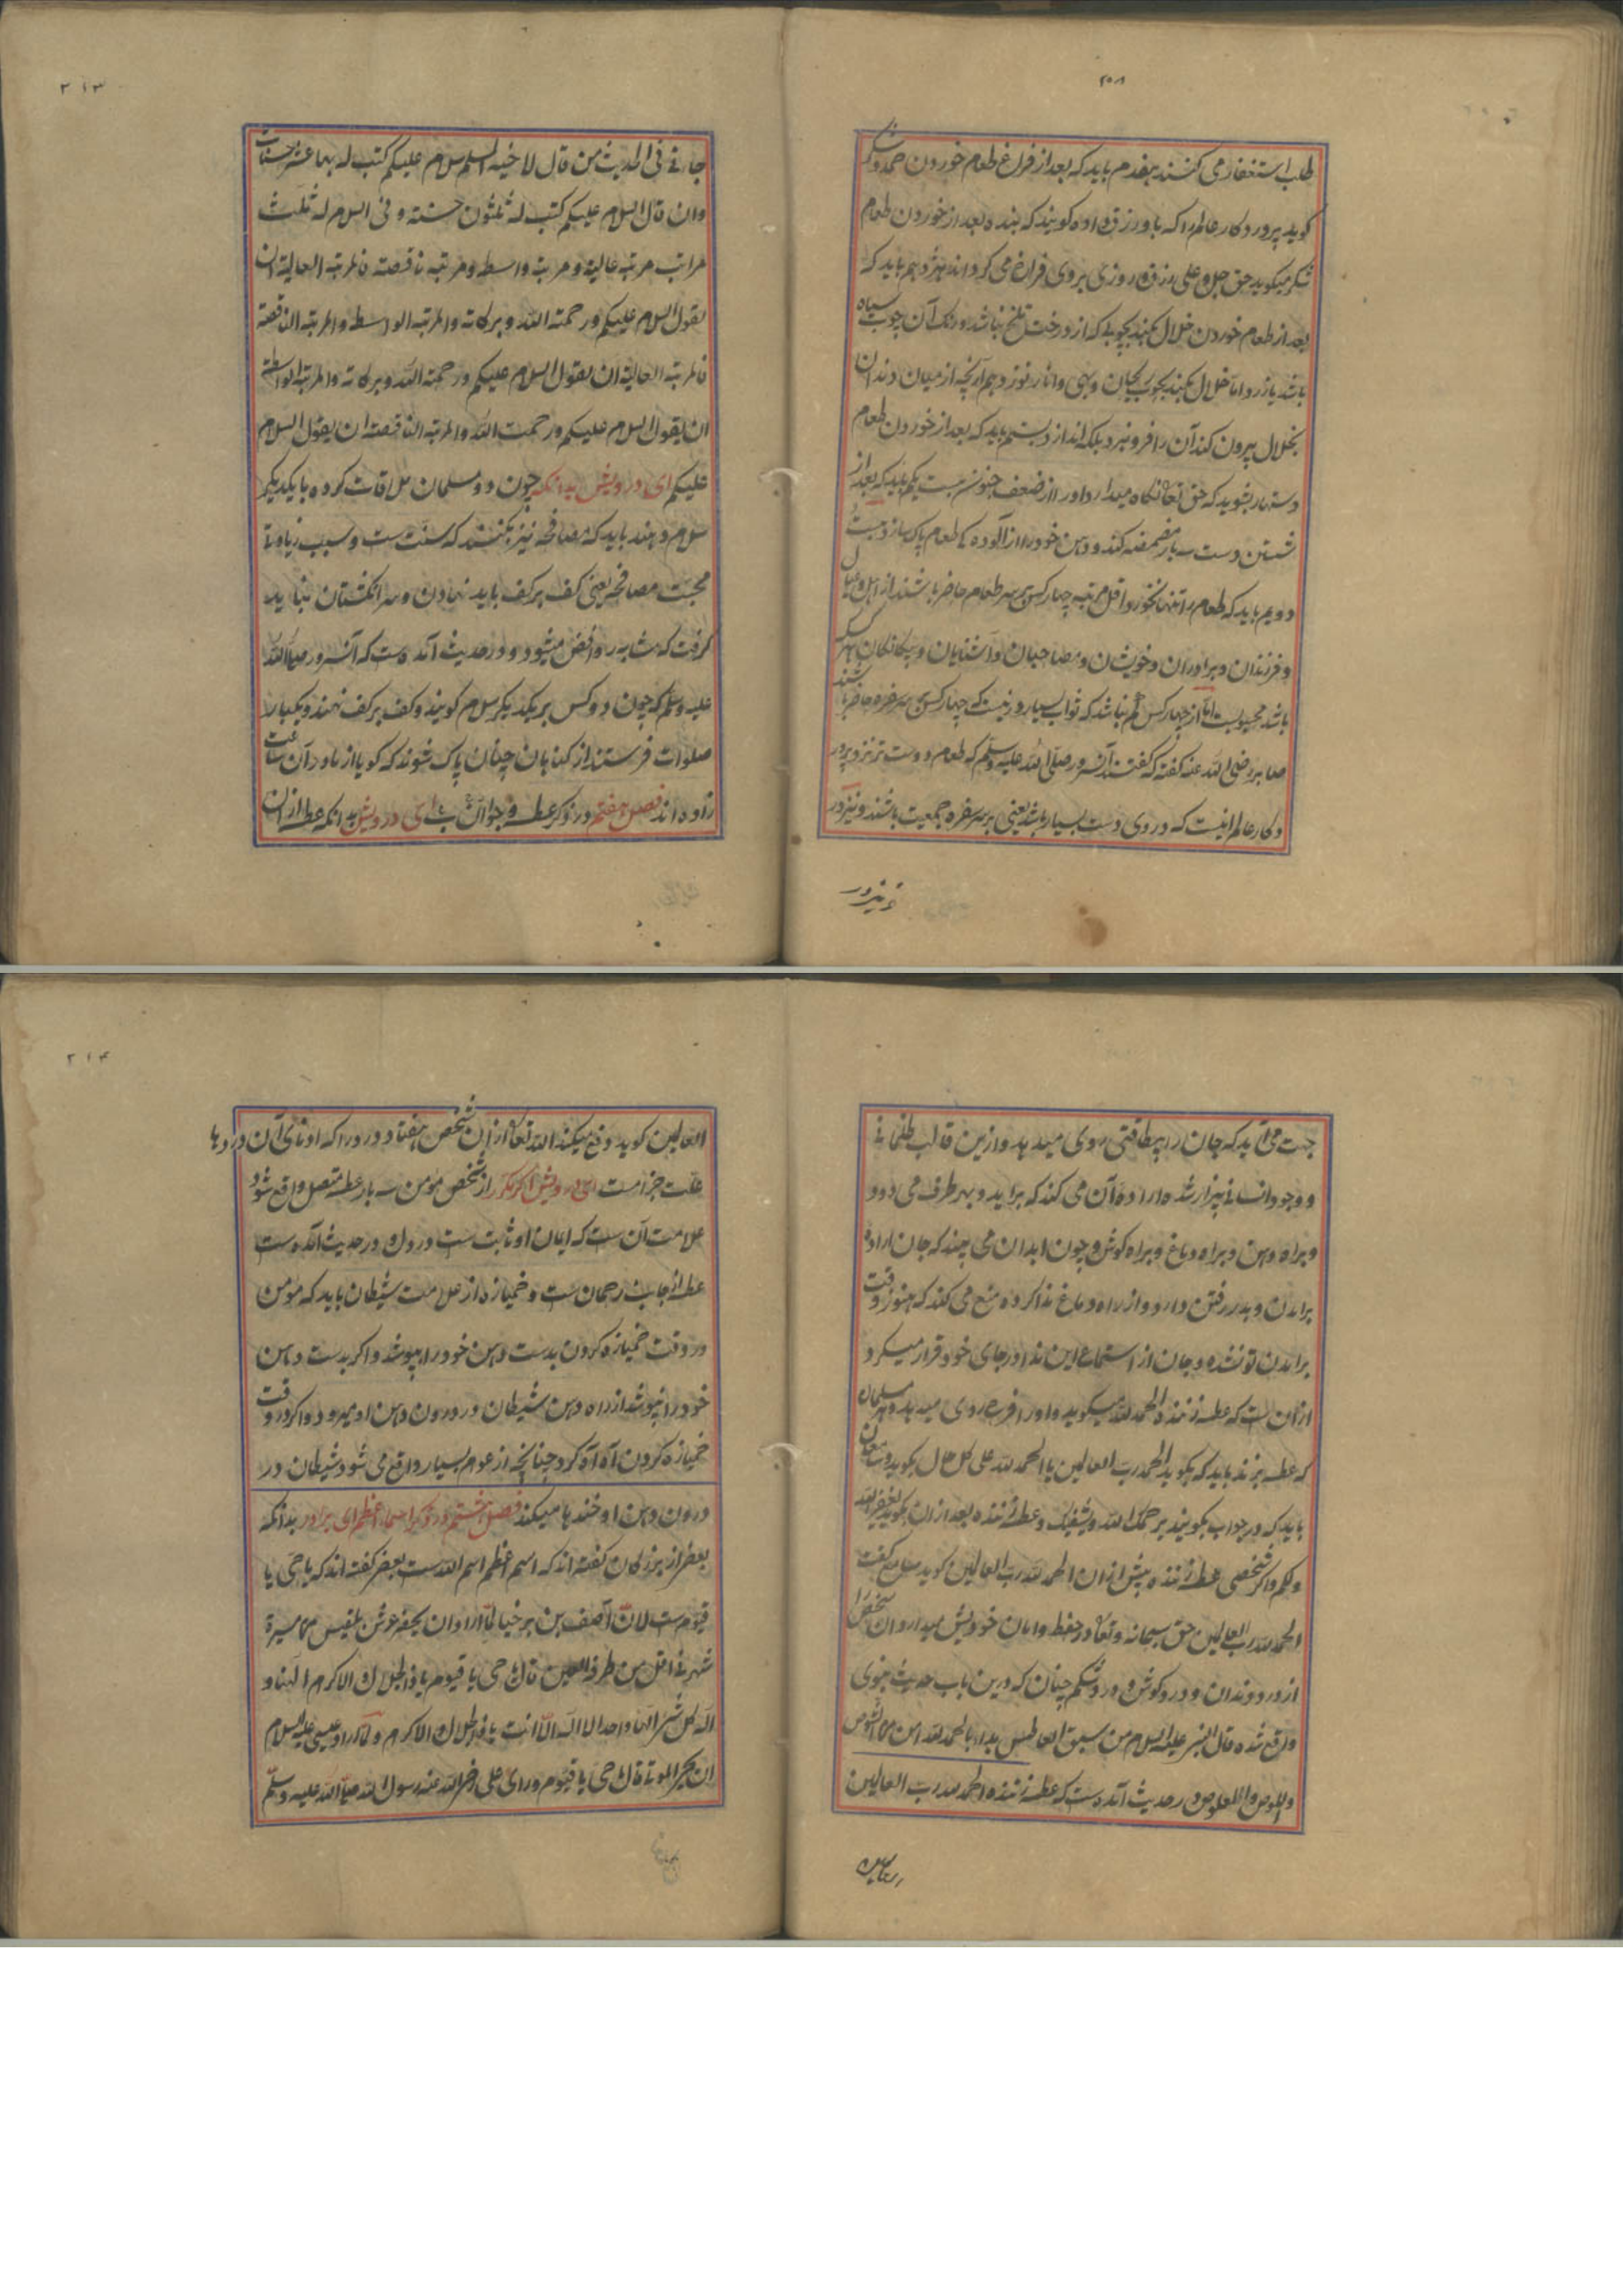 ۲۰۸
طلب استغفار می کنند هفدهم باید که بعد از فراغ طعام خوردن حمد و شکر
کوید پروردکار عالم را که باو رزق داده کویند که بنده بعد از خوردن طعام
شکر میکوید حق جل و علی رزق و روزی بروی فراخ می کرداند هژدهم باید که
بعد از طعام خوردن خلال بکند بچوبی که از درخت تلخ نباشد و رنک آن چوب سیاه
باشد یا زرد اما خلال نکند بچوب ریحان و بهی و انار نوزدهم آنچه از میان دندان
بخلال بیرون کند آن را فرو نبرد بلکه اندازد بیستم باید که بعد از خوردن طعام
دستها بشوید که حق تعالی نکاه میدارد او را از ضعف جنون بیست یکم باید که بعد از
شستن دست سه بار مضمضه کند و دهن خود را از آلوده کی طعام پاک سازد بیست
دویم باید که طعام را تنها نخورد اقل مرتبه چهار کس بر سر طعام حاضر باشند از اهل و عیال
و فرزندان و برادران و خویشان و مصاحبان و آشنایان و بیکانکان هر کسی که
باشد محبوبست اما از چهار کس کم نباشد که ثواب بسیار در نیست که چهار کس بر سر سفره حاضر باشند
صابر رضی الله عنه کفته که کفتند آن سرور صلی الله علیه وسلم که طعام دوست تر نزد پرور
دکار عالم اینست که در وی دست بسیار باشد یعنی بر سر سفره جمعیت باشند و نیز در
و نیز در
۲۱۳
جانی فی الحدیث من قال لاخیه المسلم سلام علیکم کتب له بها عشر حسنات
وان قال السلام علیکم کتب له ثلثون حسنته و فی السلام له ثلث
مراتب مرتبه عالیة و مرتبة واسطه و مرتبه ناقصته فالمرتبة العالیة ان
یقول السلام علیکم و رحمته الله و برکاته والمرتبه الواسطه والمرتبه الناقصته
فالمرتبه العالیة ان یقول السلام علیکم و رحمته الله و برکاته والمرتبة الواسطة
ان یقول السلام علیکم و رحمت الله والمرتبه الناقصته ان یقول السلام
علیکم ای درویش بدانکه چون دو مسلمان ملاقات کرده با یکدیکر
سلام دهند باید که مصافحه نیز بکنند که سنت ست و سبب زیادتی
محبت مصافحه یعنی کف بر کف باید نهادن و سر انکشتان نباید
کرفت که مشابه روافض میشود و در حدیث آمده ست که آن سرور صلی الله
علیه وسلم که چون دو کس بر یکدیکر سلام کویند و کف بر کف نهند و یکبار
صلوات فرستند از کناهان چنان پاک شوند که کویا از مادر آن ساعت
زاده اند فصل هفتم در ذکر عطسه و جواب آن ای درویش بدانکه عطسه از ان
جهت می آید که جان را بیطاقتی روی میدهد و ازین قالب ظلمانی
و وجود انسانی بیزار شده اراده آن می کند که براید و بهر طرف می دود
و براه دهن و براه دماغ و براه کوش و چون ابدان می بیند که جان اراده
برامدن و بدر رفتن دارد و از راه دماغ ندا کرده منع می کند که هنوز وقت
برامدن تو نشده و جان از استماع این ندا در جای خود قرار میکرد
ازان ست که عطسه زننده الحمد لله میکوید و او را فرح روی میدهد و هر مسلمان
که عطسه بزند باید که بکوید الحمد رب العالمین یا الحمد لله علی کل حال بکوید و سامعان
باید که در جواب بکویند یرحمک الله و یشفیک و عطسه زننده بعد از ان بکوید یغفر الله
ولکم و اکر شخصی عطسه زننده پیش از ان الحمد لله رب العالمین کوید سامع کفت
الحمد لله رب العالمین حق سبحانه و تعالی در حفظ و امان خودیش میدارد ان شخص را
از درد دندان و درد کوش و درد شکم چنان که درین باب حدیث نبوی
واقع شده قال النبی علیه السلام من سبق العاطس بدا بالحمد لله امن من الشوص
واللوص والعلوص و در حدیث آمده ست که عطسه زننده الحمد لله رب العالمین
العالمین
۲۱۴
العالمین کوید دفع میکند الله تعالی از ان شخص هفتاد درد را که ادنای آن دردها
علت جزامست ای درویش اکر مکرر از شخص مومن سه بار عطسه متصل واقع شود
علامت آن ست که ایمان او ثابت ست در دل و در حدیث آمده ست
عطسه از جانب رحمان ست و خمیازه از علامت شیطان باید که مومن
در وقت خمیازه کردن بدست دهن خود را بپوشد و اکر بدست دهن
خود را نپوشد از راه دهن شیطان در درون دهن او میرود و اکر در وقت
خمیازه کردن آه آه کرد چنانچه از عوام بسیار واقع می شود شیطان در
درون دهن او خندها میکند فصل هشتم در ذکر اسماء اعظم ای برادر بدانکه
بعضی از بزرکان کفته اند که اسم اعظم اسم الله ست بعضی کفته اند که یا حی یا
قیوم ست لان آصف بن برخیا لما اراد ان یحضر عرش بلقیس من مسیرة
شهر فی اقل من طرفة العین قال یا حی یا قیوم یا ذالجلال والاکرم الهنا و
اله کل شی الها واحدا لا اله الا انت یا ذالجلال والاکرم و لما اراد عیسی علیه السلام
ان یحیی الموتا قال یا حی یا قیوم و رای علی رضی الله عنه رسول الله صلی الله علیه وسلم